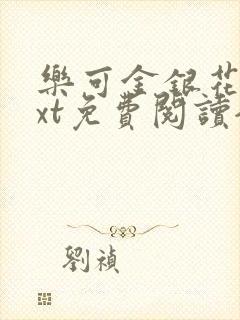 樂可金銀花
xt免費閱讀
劉禎